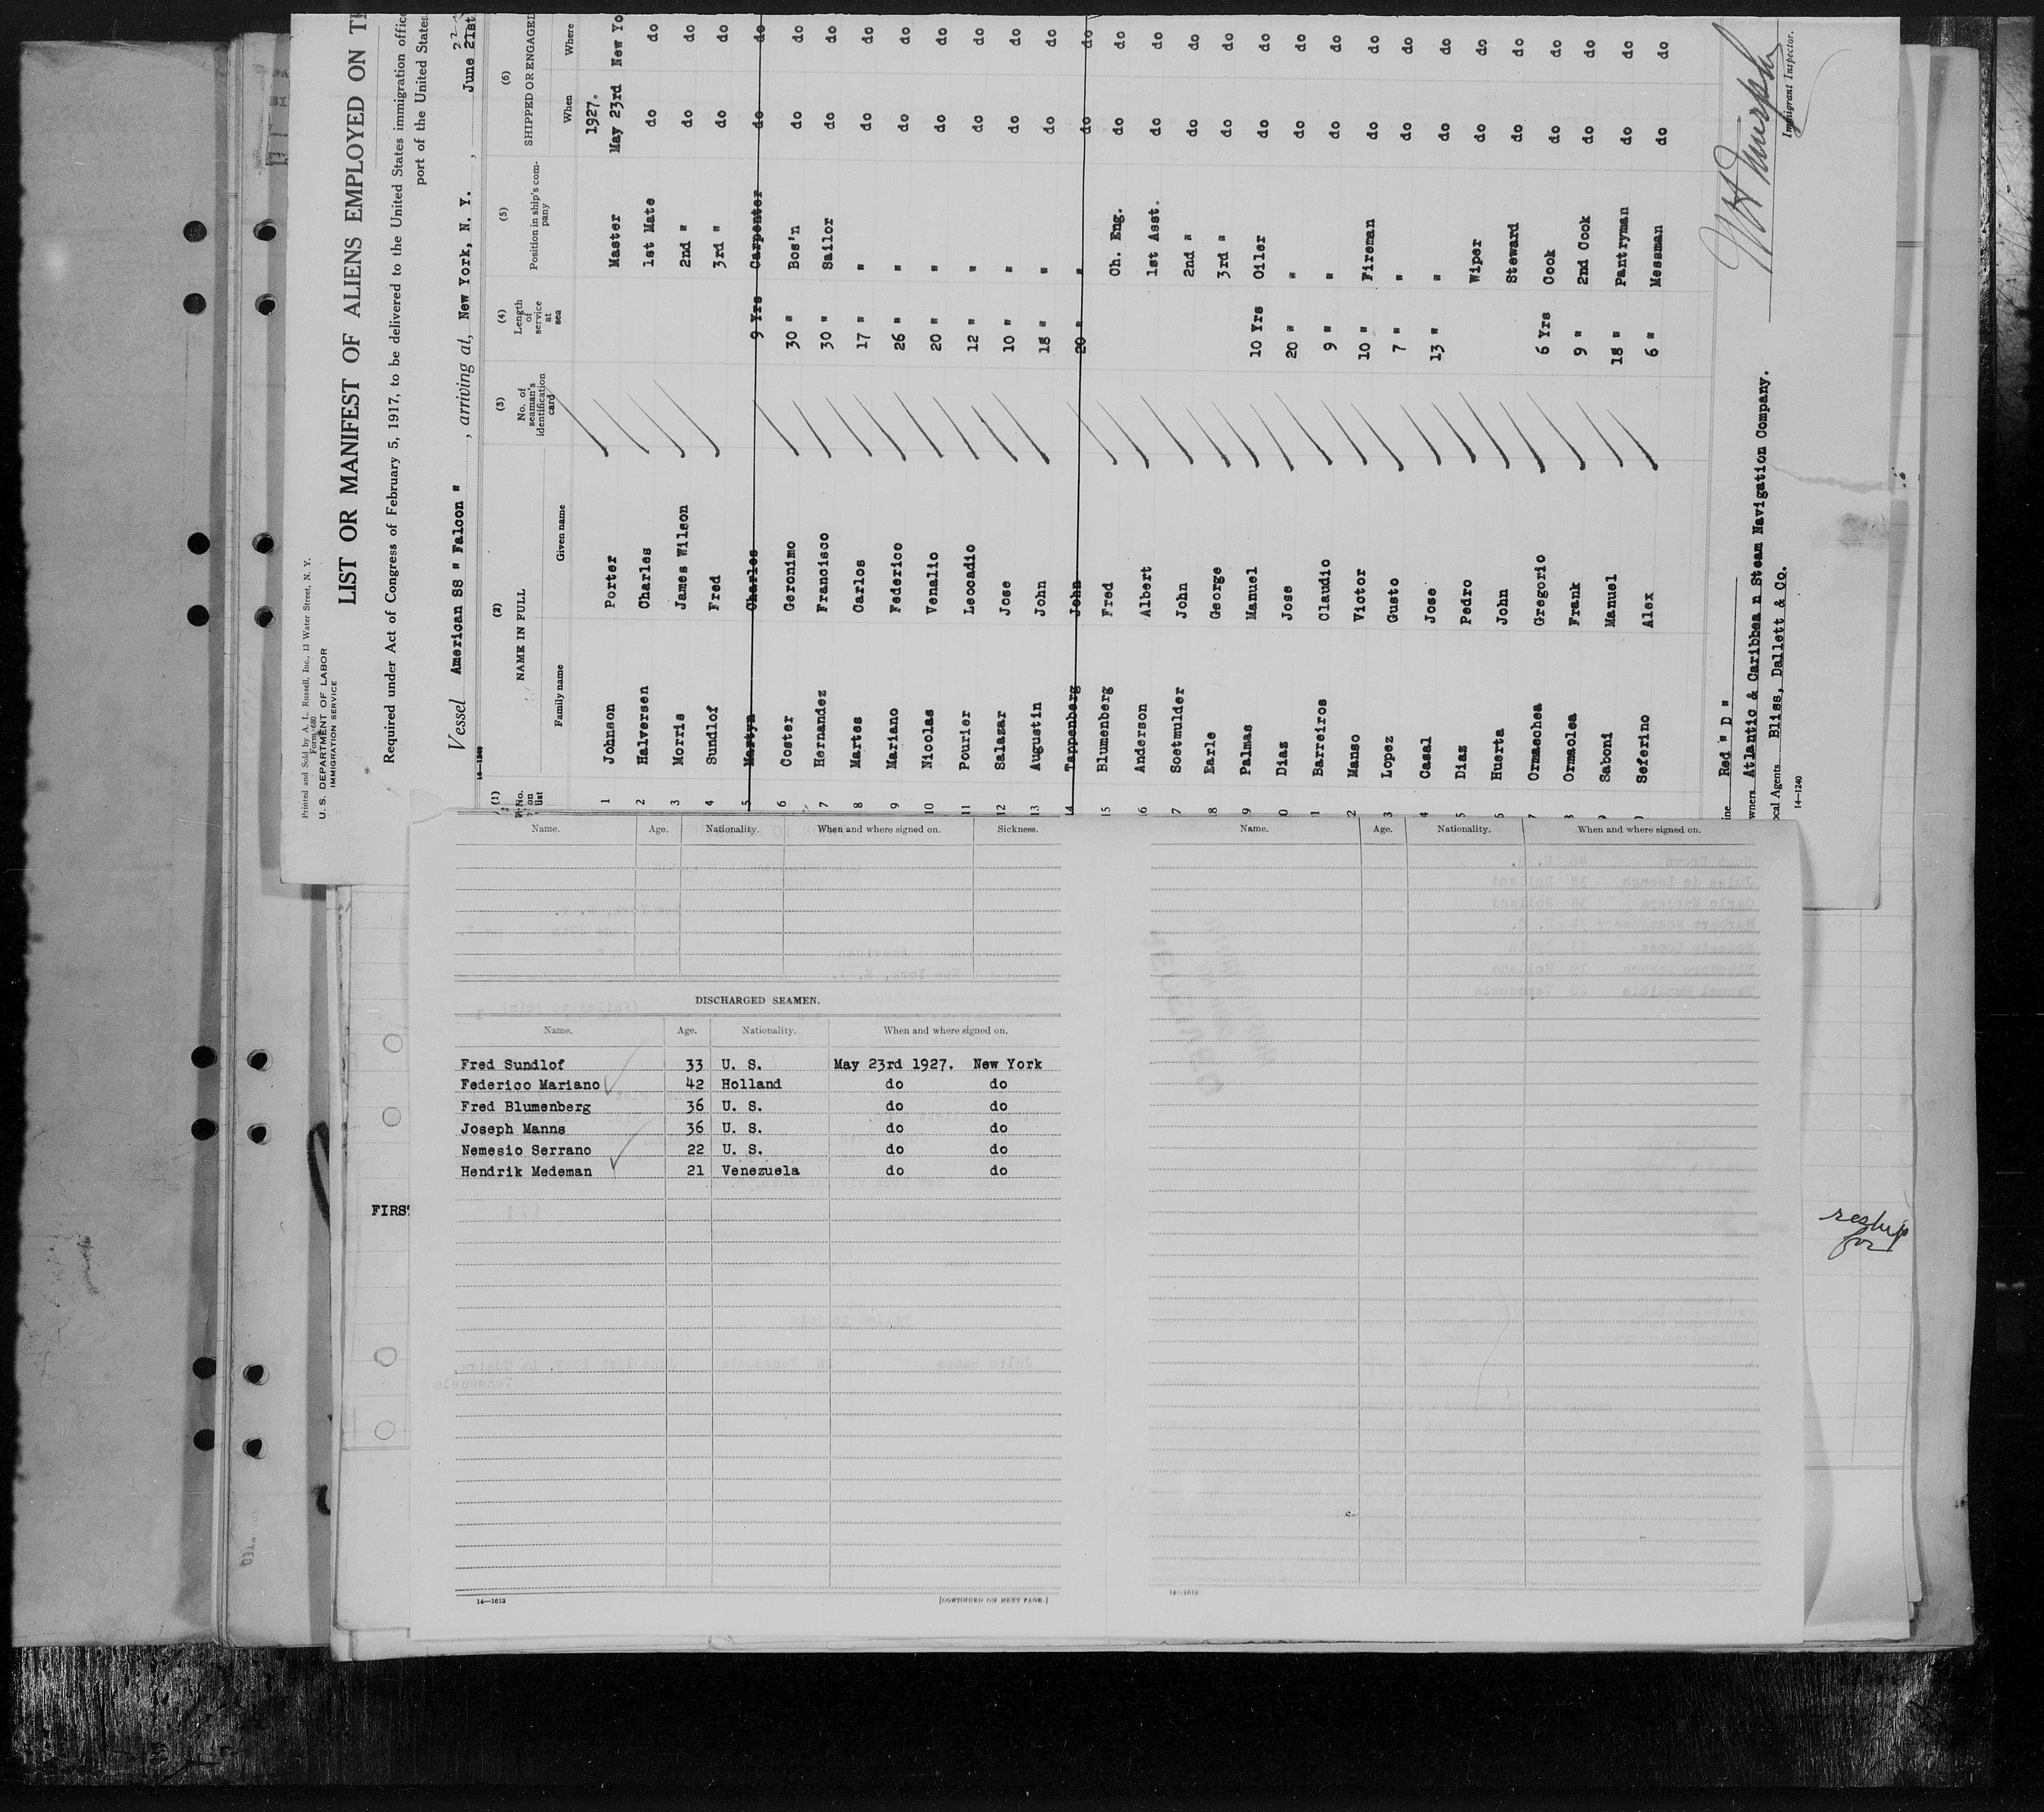 Printed and Sold by A. L. Russell, Inc., 13 Water Street, N. Y.
Form 680
U. S. DEPARTMENT OF LABOR
IMMIGRATION SERVICE
LIST OR MANIFEST OF ALIENS EMPLOYED ON
Required under Act of Congress of February 5, 1917, to be delivered to the United States immigration
port of the United States
Vessel American SS " Falcon " , arriving at, New York, N. Y. , June 21st
22
14-1240
(1) (2) (3) (4) (5) (6)
No. on list NAME IN FULL No. of seaman's identification card Length of service at sea Position in ship's company SHIPPED OR ENGAGED
Family name Given name When Where
1927.
1 Johnson Porter Master May 23rd New Yo
2 Halversen Charles 1st Mate do do
3 Morris James Wilson 2nd " do do
4 Sundlof Fred 3rd " do do
5 Martyn Charles 9 Yrs Carpenter do do
6 Coster Geronimo 30 " Bos'n do do
7 Hernandez Francisco 30 " Sailor do do
8 Martes Carlos 17 " " do do
9 Mariano Federico 26 " " do do
10 Nicolas Venalio 20 " " do do
11 Pourier Leocadio 12 " " do do
12 Salazar Jose 10 " " do do
13 Augustin John 18 " " do do
14 Tappenberg John 20 " " do do
15 Blumenberg Fred Ch. Eng. do do
6 Anderson Albert 1st Asst. do do
7 Soetmulder John 2nd " do do
8 Earle George 3rd " do do
9 Palmas Manuel 10 Yrs Oiler do do
0 Diaz Jose 20 " " do do
1 Barreiros Claudio 9 " " do do
2 Manso Victor 10 " Fireman do do
3 Lopez Gusto 7 " " do do
4 Casal Jose 13 " " do do
5 Diaz Pedro Wiper do do
6 Huerta John Steward do do
7 Ormaechea Gregorio 6 Yrs Cook do do
8 Ormaolea Frank 9 " 2nd Cook do do
9 Saboni Manuel 18 " Pantryman do do
Seferino Alex 6 " Messman do do
ine Red " D "
wners Atlantic & Caribbea n Steam Navigation Company.
ocal Agents Bliss, Dallett & Co.
14-1240
W H Murphy
Immigrant Inspector.
Name. Age. Nationality. When and where signed on. Sickness.
DISCHARGED SEAMEN.
Name. Age. Nationality. When and where signed on.
Fred Sundlof 33 U. S. May 23rd 1927. New York
Federico Mariano 42 Holland do do
Fred Blumenberg 36 U. S. do do
Joseph Manns 36 U. S. do do
Nemesio Serrano 22 U. S. do do
Hendrik Medeman 21 Venezuela do do
14—1613
[CONTINUED ON NEXT PAGE.]
Name. Age. Nationality. When and where signed on.
14—1613
FIRS
reship
for